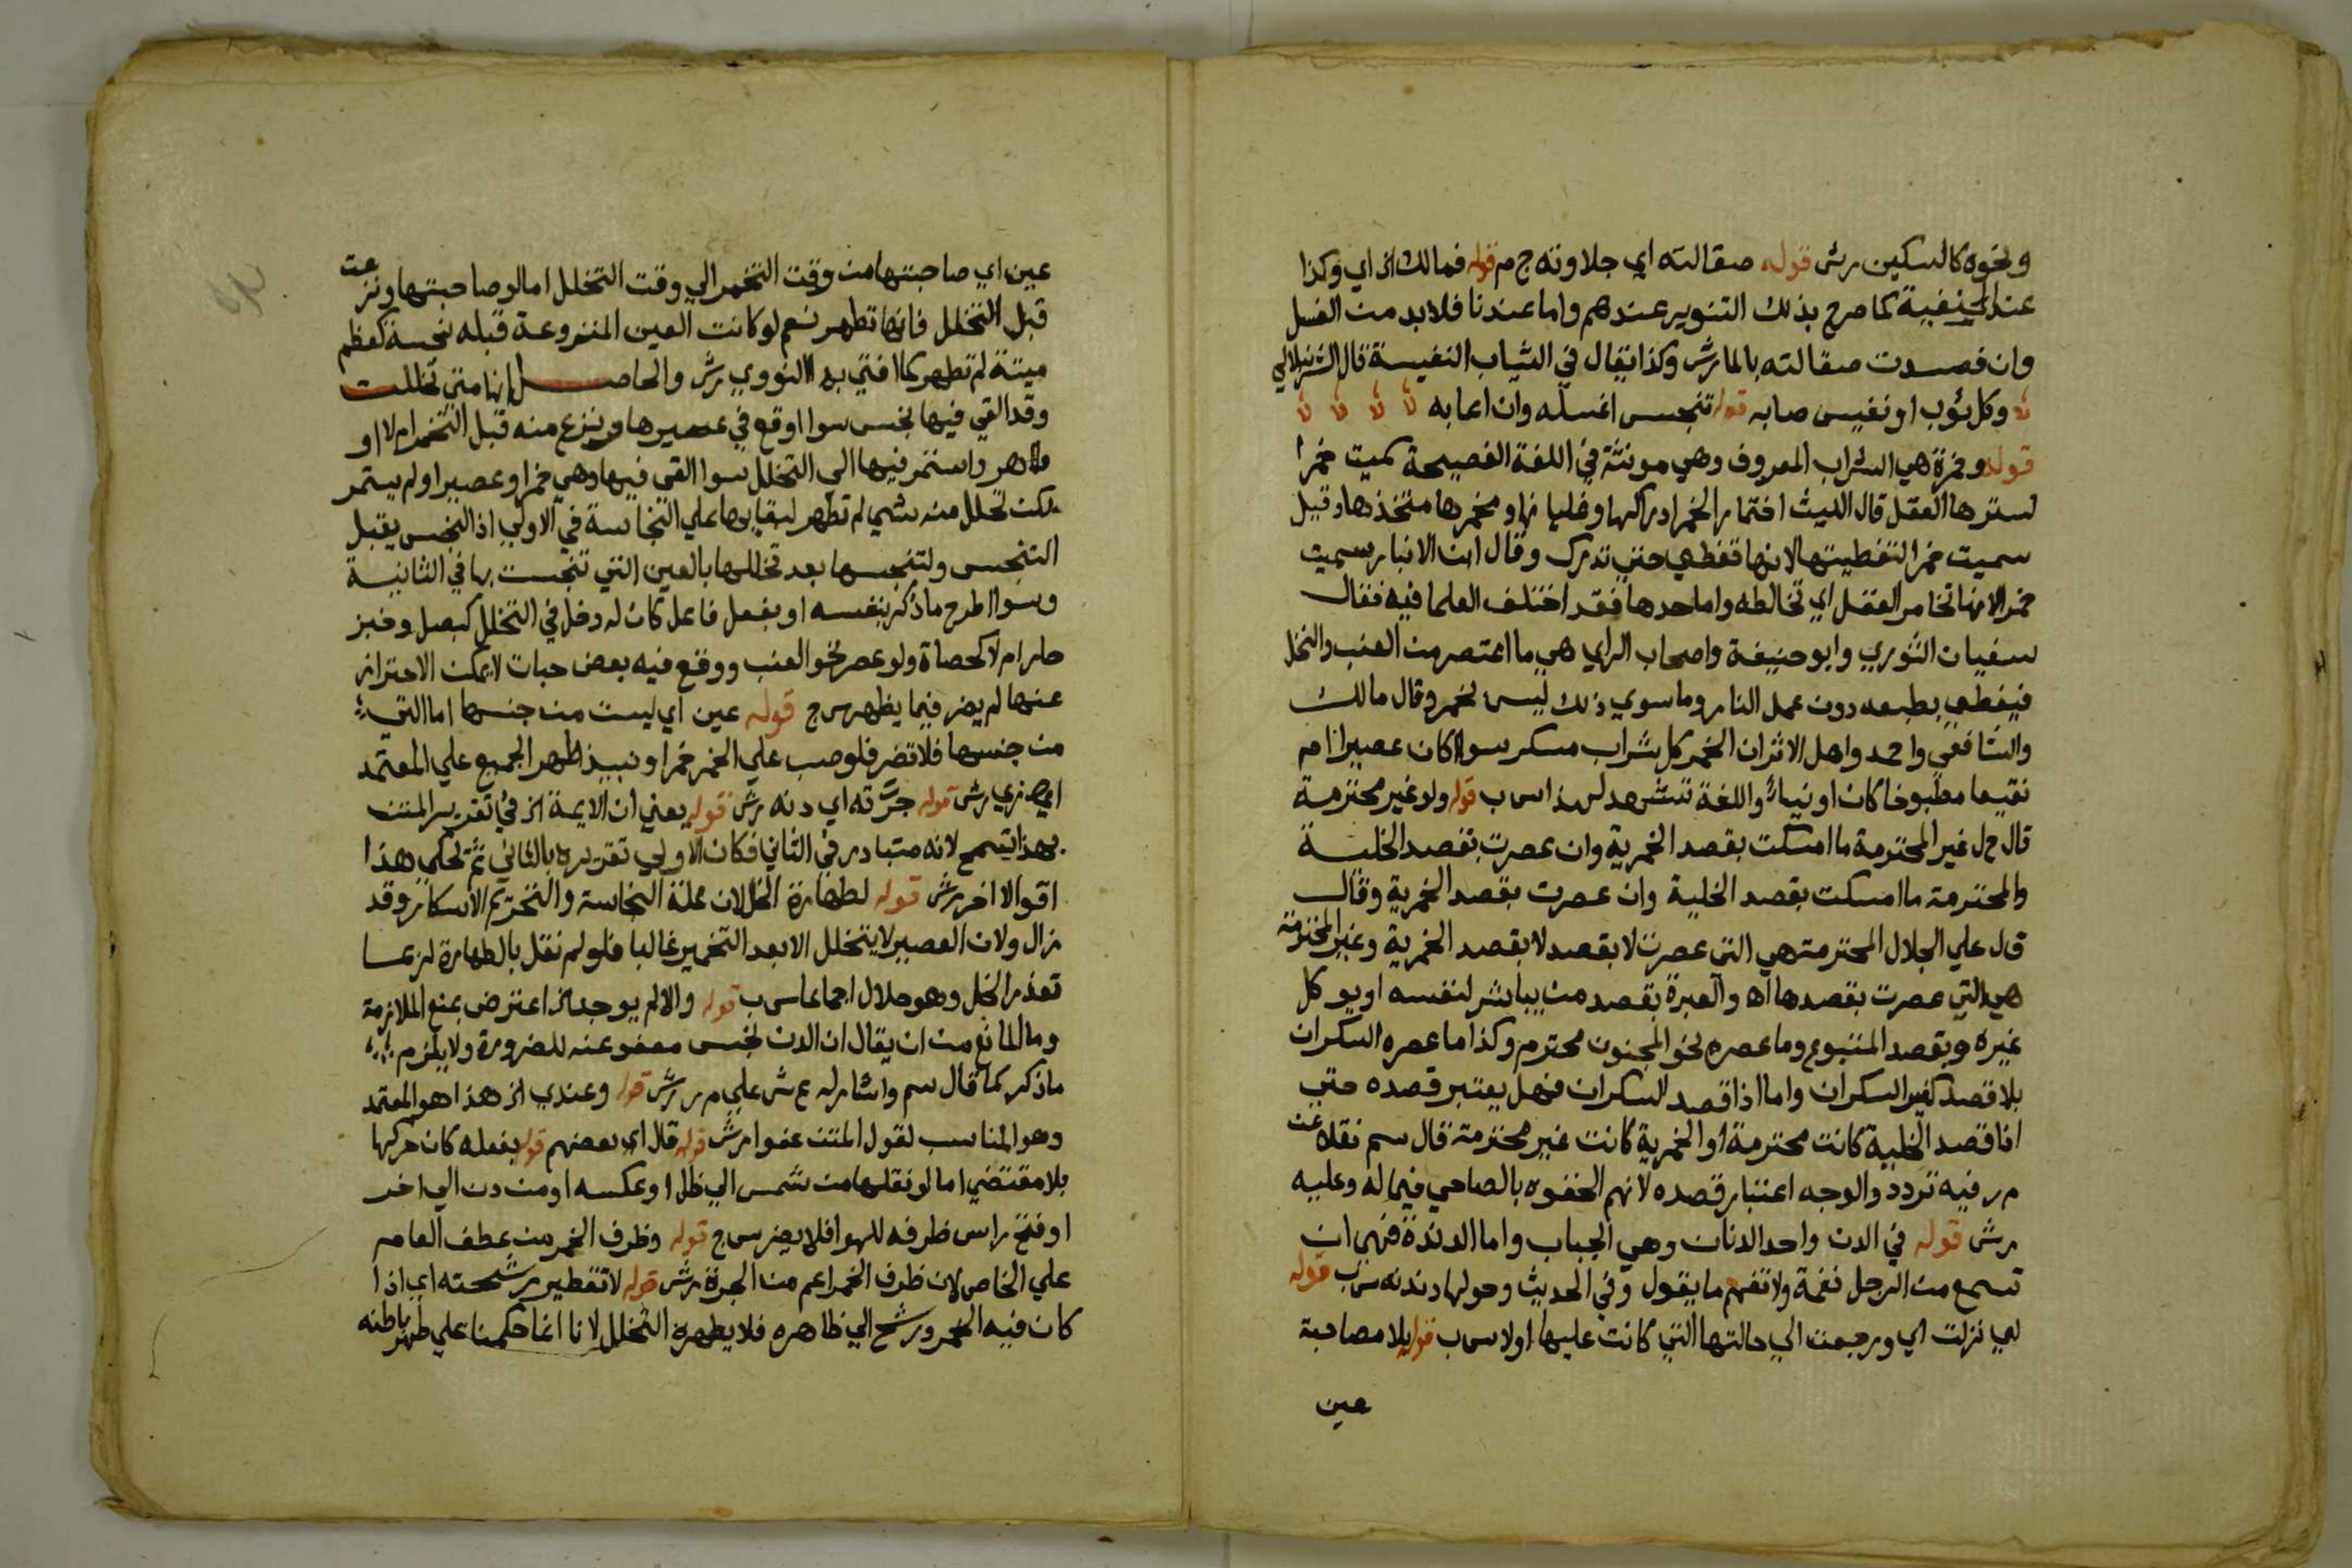 ونحوه كالسكين رش قوله صقالته اي جلاوته ج م قوله فمالك اخ اي وكذا
عند الحنفية كما صرح بذلك التنوير عندهم واما عندنا فلا بد من الغسل
وان فسدت صقالته بالماء رش وكذا يقال في الثياب النفيسة قال الشرنبلالي
وكل ثوب او نفيس صابه قوله تنجس اغسله وان اعابه
قوله وخمرة هي الشراب المعروف وهي مونثة في اللغة الفصيحة سميت خمرا
لسترها العقل قال الليث اختمار الخمر ادراكها وغليانها ومخمرها متخذها وقيل
سميت خمرا لتغطيتها لانها تغطي حتى تدرك وقال ابن الانبار سميت
خمرا لانها تخامر العقل اي تخالطه واما حدها فقد اختلف العلما فيه فقال
سفيان الثوري وابو حنيفة واصحاب الراي هي ما اعتصر من العنب والنخل
فيغطي بطبعه دون عمل النار وما سوي ذلك ليس بخمر وقال مالك
والشافعي واحمد واهل الاثر ان الخمر كل شراب مسكر سوا كان عصيرا ام
نقيعا مطبوخا كان او نيا واللغة تشهد لهذا اس ب قوله ولو غير محترمة
قال ح ل غير المحترمة ما امسكت بقصد الخمرية وان عصرت بقصد الخلية
والمحترمة ما امسكت بقصد الخلية وان عصرت بقصد الخمرية وقال
ق ل علي الجلال المحترمة هي التي عصرت لا بقصد لا بقصد الخمرية وغير المحترمة
هي التي عصرت بقصدها اه والعبرة بقصد من يباشر لنفسه او يوكل
غيره وبقصد المتبوع وما عصره نحو المجنون محترم وكذا ما عصره السكران
بلا قصد كغير السكران واما اذا قصد السكران فهل يعتبر قصده حتى
اذا قصد الخلية كانت محترمة او الخمرية كانت غير محترمة قال سم نقلا عن
م ر فيه تردد والوجه اعتبار قصده لانهم الحقوه بالصاحي فيما له وعليه
م رش قوله في الدن واحد الدنان وهي الجباب واما الدندنة فهي ان
تسمع من الرجل نغمة ولا تفهم ما يقول وفي الحديث وحولها دندنه س ب قوله
اي نزلت اي ورجعت الي حالتها التي كانت عليها اولا س ب قوله بلا مصاحبة
عين
عين اي صاحبتها من وقت التخمر الي وقت التخلل اما لو صاحبتها ونزعت
قبل التخلل فانها تطهر نعم لو كانت العين المنزوعة قبله نجسة كعظم
ميتة لم تطهر كما افتي به النووي رش والحاصل انها متي تخللت
وقد القي فيها نجس سوا اوقع في عصيرها ونزع منه قبل التخمر ام لا او
طاهر واستمر فيها الي التخلل سوا القي فيها وهي خمر او عصير او لم يستمر
لكن تحلل منه شي لم تطهر لبقايها علي النجاسة في الاولي اذ النجس يقبل
التنجس ولتنجسها بعد تخللها بالعين التي تنجست بها في الثانية
وسوا طرح ما ذكر بنفسه او بفعل فاعل كان له دخل في التخلل كبصل وخبز
حار ام لا كحصاة ولو عصر نحو العنب ووقع فيه بعض حبات لا يمكن الاحتراز
عنها لم يضر فيما يظهر س ج قوله عين اي ليست من جنسها اما التي
من جنسها فلا تضر فلو صب علي الخمر خمرا او نبيذ طهر الجميع علي المعتمد
رش قوله جرته اي دنه رش قوله يعني ان الايمة اخ في تقرير المتن
بهذا تسمح لانه متبادر في الثاني فكان الاولي تقريره بالثاني ثم تحكي هذا
اقوالا اخر رش قوله لطهارة الخل لان علة النجاسة والتحريم الاسكار وقد
زال ولان العصير لا يتخلل الا بعد التخمير غالبا فلو لم نقل بالطهارة لربما
تعذر الخل وهو حلال اجماعا س ب قوله والا لم يوجد اخ اعترض بمنع الملازمة
وما المانع من ان يقال ان الدن نجس معفو عنه للضرورة ولا يلزم
ما ذكر كما قال سم واشار له ع ش علي م ر رش قوله وعندي اخ هذا هو المعتمد
وهو المناسب لقول المتن عفوا رش قوله قال اي بعضهم قوله بفعله كان حركها
بلا مقتضي اما لو نقلها من شمس الي ظل او عكسه او من دن الي اخر
او فتح راس ظرفه للهوا فلا يضر س ج قوله وظرف الخمر من عطف العام
علي الخاص لان ظرف الخمر اعم من الجرة رش قوله لا تقطير رشحته اي اذا
كان فيه الخمر ورشح الي ظاهره فلا يطهره التخلل لانا انما حكمنا علي طهر باطنه